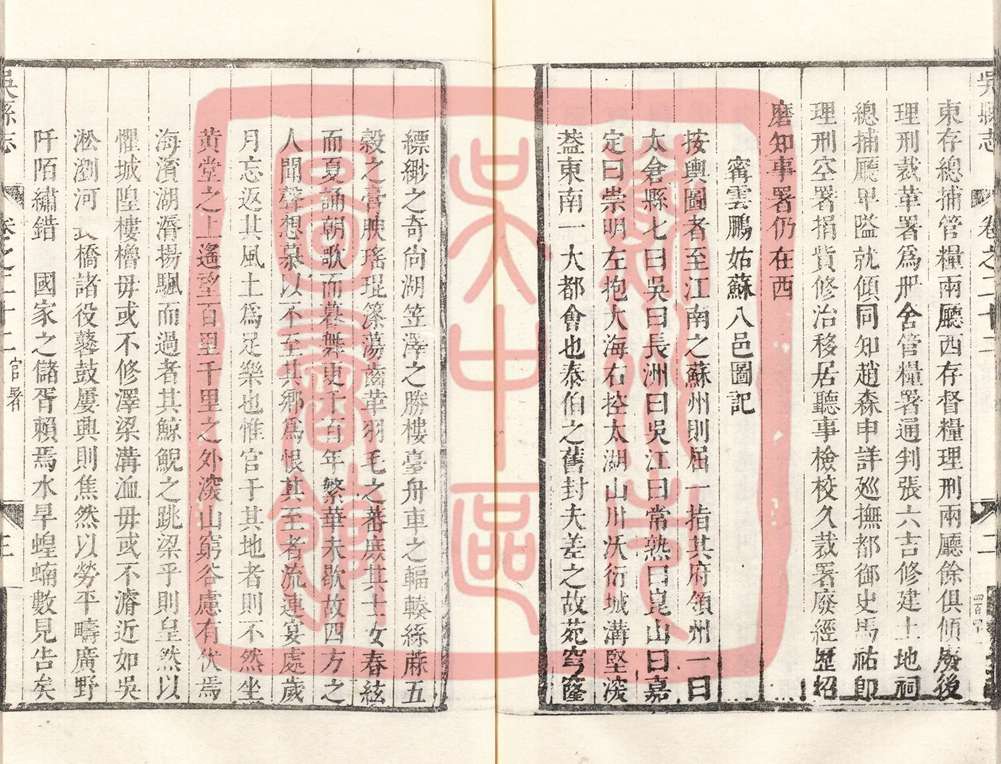 東存總捕管糧兩廳西存督糧理刑兩廳餘俱傾廢後
理刑裁革署爲册舍管糧署通判張六吉修建土地祠
總捕廳卑隘就傾同知趙森申詳廵撫都御史馬祐卽
理刑空署捐貲修治移居聽事檢校久裁署廢經歷炤
磨知事署仍在西
甯雲鵬姑蘇八邑圖記
按輿圖者至江南之蘇州則屈一指其府領州一曰
太倉縣七曰吳曰長洲曰吳江曰常熟曰崑山曰嘉
定曰崇明左抱大海右控太湖山川沃衍城溝堅深
蓋東南一大都會也泰伯之舊封夫差之故苑穹窿
吳縣志
卷之二十二
二
縹緲之奇尙湖笠澤之勝樓臺舟車之輻輳絲蔴五
穀之膏腴瑤琨篠蕩齒革羽毛之蕃庶其士女春絃
而夏誦朝歌而暮舞更千百年繁華未歇故四方之
人聞聲想慕以不至其鄉爲恨其至者流連宴處歲
月忘返其風土爲足樂也惟官于其地者則不然坐
黄堂之上遙望百里千里之外深山窮谷慮有伏焉
海濱湖漘揚颿而過者其鯨鯢之跳梁乎則皇然以
懼城隍樓櫓毋或不修澤梁溝洫毋或不濬近如吳
淞瀏河長橋諸役鼛鼓屢興則焦然以勞平疇廣野
阡陌繡錯 國家之儲胥賴焉水旱蝗蝻數見告矣
吳縣志
卷之二十二 官署
三
蘇州市
吳中區
圖書館